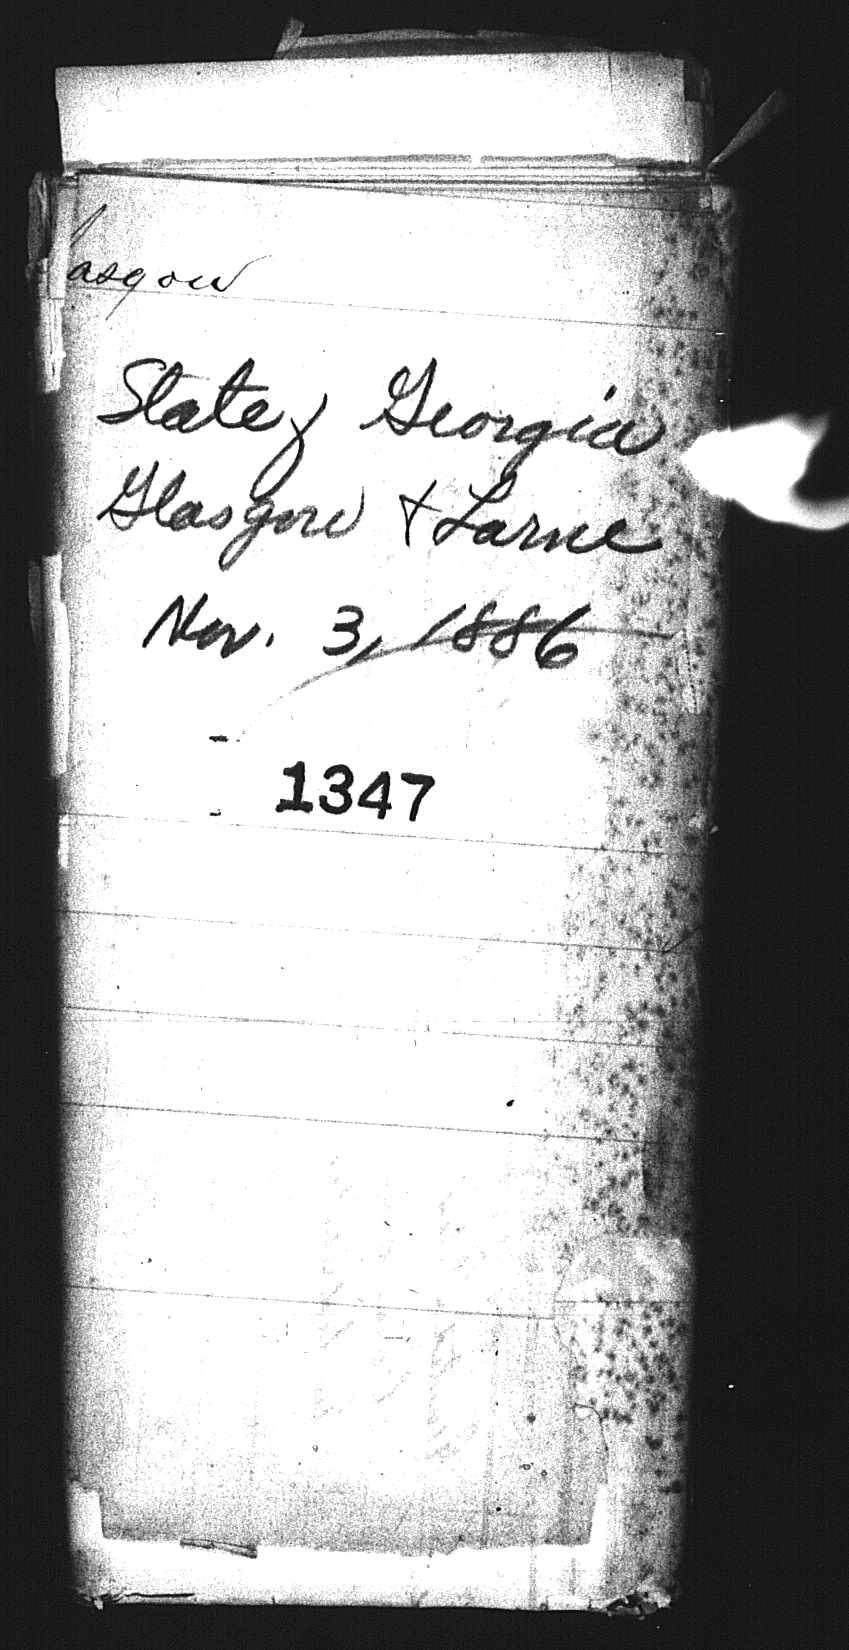 lasgow
State of Georgia
Glasgow & Larne
Nov. 3, 1886
1347